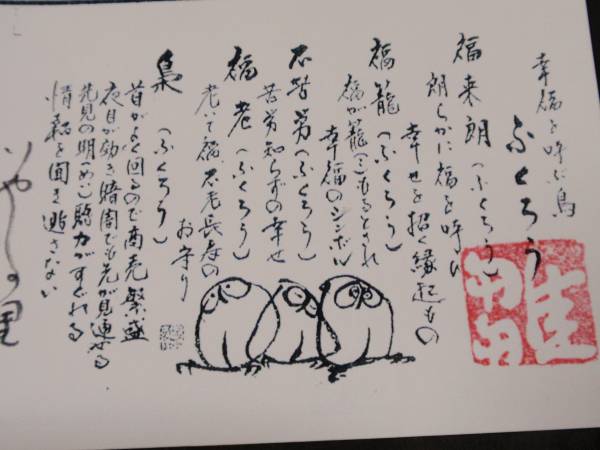 幸福を呼ぶ鳥
ふくろう
福来朗（ふくろう）
朗らかに福を呼び
幸せを招く縁起もの
福籠（ふくろう）
福が籠（こ）もるとされ
幸福のシンボル
不苦労（ふくろう）
苦労知らずの幸せ
福老（ふくろう）
老いて福、不老長寿の
お守り
梟（ふくろう）
首がよく回るので商売繁盛
夜目が効き暗闇でも先が見通せる
先見の明、めざとい
情報を聞き逃さない
の里